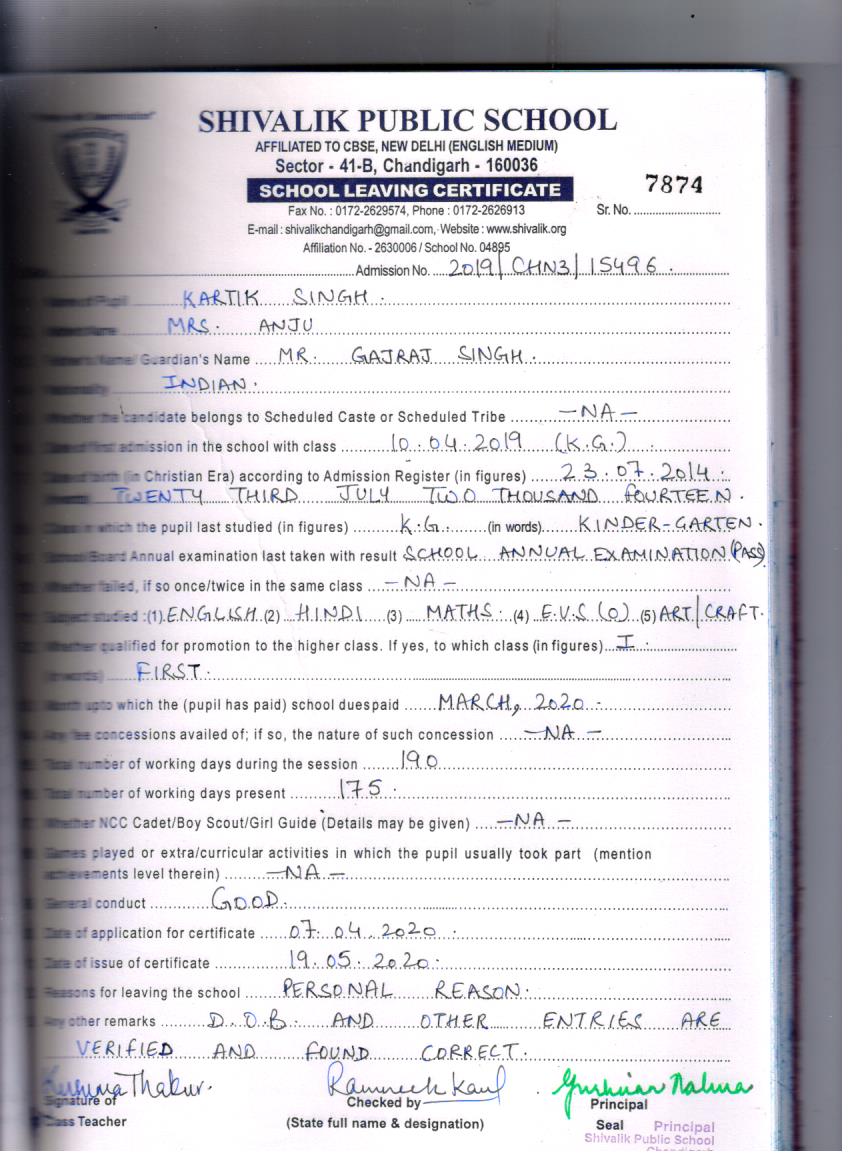 SHIVALIK PUBLIC SCHOOL
AFFILIATED TO CBSE, NEW DELHI (ENGLISH MEDIUM)
Sector - 41-B, Chandigarh - 160036
SCHOOL LEAVING CERTIFICATE
7874
Fax No. : 0172-2629574, Phone : 0172-2626913 Sr. No.
E-mail : shivalikchandigarh@gmail.com, Website : www.shivalik.org
Affiliation No. - 2630006 / School No. 04895
Admission No. 2019/CHN3/15496.
Name of Pupil KARTIK SINGH.
Name MRS. ANJU
Name/ Guardian's Name MR. GAJRAJ SINGH.
Nationality INDIAN.
Whether the candidate belongs to Scheduled Caste or Scheduled Tribe -NA-
Date of first admission in the school with class 10.04.2019 (K.G.)
Date of birth (in Christian Era) according to Admission Register (in figures) 23.07.2014.
TWENTY THIRD JULY TWO THOUSAND FOURTEEN.
Class in which the pupil last studied (in figures) K.G. (in words) KINDER-GARTEN.
School/Board Annual examination last taken with result SCHOOL ANNUAL EXAMINATION (PASS)
Whether failed, if so once/twice in the same class -NA-
Subject studied :(1) ENGLISH (2) HINDI (3) MATHS. (4) E.V.S (O) (5) ART/CRAFT.
Whether qualified for promotion to the higher class. If yes, to which class (in figures) I.
(in words) FIRST.
Month upto which the (pupil has paid) school duespaid MARCH, 2020.
Any fee concessions availed of; if so, the nature of such concession -NA-
Total number of working days during the session 190
Total number of working days present 175.
Whether NCC Cadet/Boy Scout/Girl Guide (Details may be given) -NA-
Games played or extra/curricular activities in which the pupil usually took part (mention
achievements level therein) -NA-
General conduct GOOD.
Date of application for certificate 07.04.2020.
Date of issue of certificate 19.05.2020.
Reasons for leaving the school PERSONAL REASON.
Any other remarks D.O.B. AND OTHER ENTRIES ARE
VERIFIED AND FOUND CORRECT.
Thakur. Ramneek Kaur
Signature of Checked by Principal
Class Teacher (State full name & designation) Seal Principal
Shivalik Public School
Chandigarh